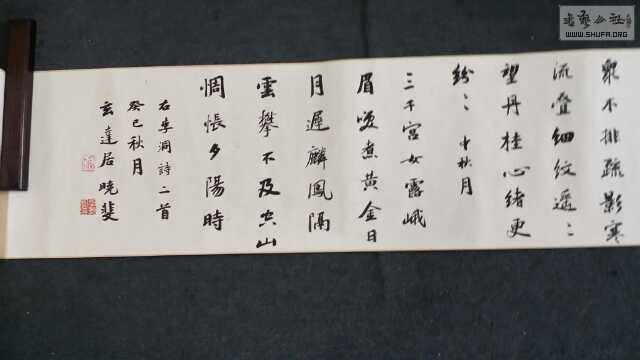 眾木排疏影寒
流疊細紋遥〻
望丹桂心緒更
紛〻 中秋月
三千宮女露峨
眉笑煮黄金日
月遲麟鳳隔
雲攀不及空山
惆悵夕陽時
右李洞詩二首
癸巳秋月
玄達居曉斐
書藝公社
WWW.SHUFA.ORG